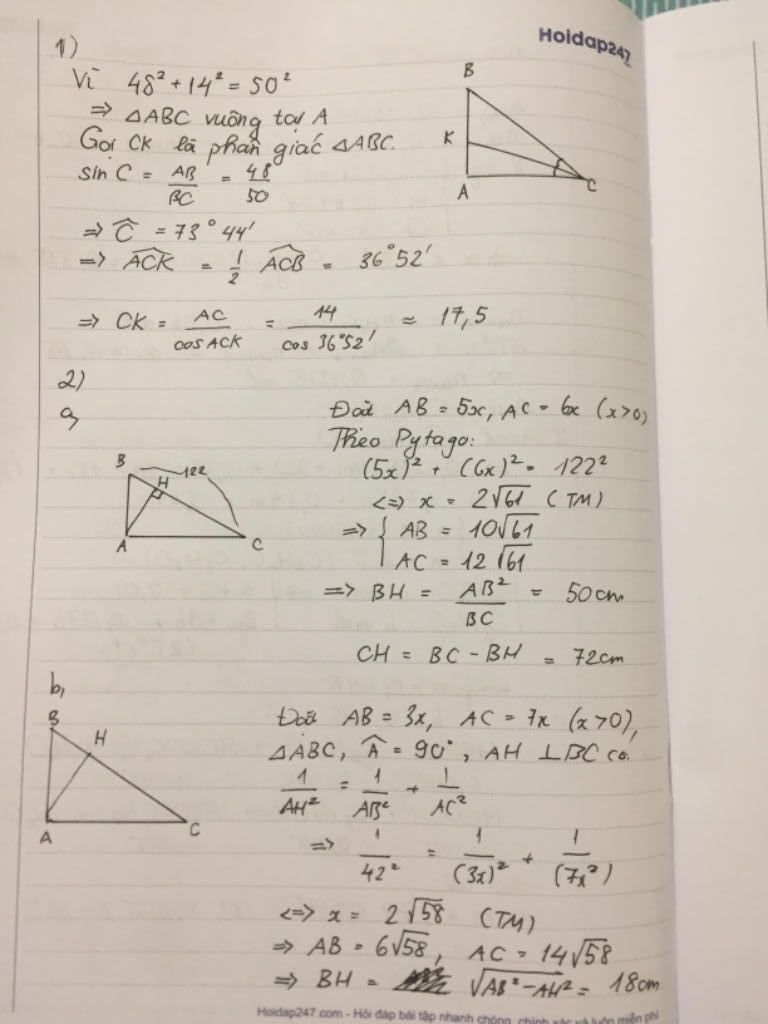 Hoidap247
1)
Vì 48² + 14² = 50²
=> △ABC vuông tại A
Gọi CK là phân giác △ABC.
sin C = AB/BC = 48/50
=> Ĉ = 73° 44'
=> ACK = 1/2 ACB = 36° 52'
=> CK = AC/cos ACK = 14/cos 36°52' ≈ 17,5
B
K
A
C
2)
a,
Đặt AB = 5x, AC = 6x (x>0)
Theo Pytago:
(5x)² + (6x)² = 122²
<=> x = 2√61 (TM)
=> { AB = 10√61
AC = 12√61
=> BH = AB²/BC = 50cm
CH = BC - BH = 72cm
B
122
H
A
C
b,
Đặt AB = 3x, AC = 7x (x>0),
△ABC, Â = 90°, AH ⊥ BC có
1/AH² = 1/AB² + 1/AC²
=> 1/42² = 1/(3x)² + 1/(7x²)
<=> x = 2√58 (TM)
=> AB = 6√58, AC = 14√58
=> BH = √AB² - AH² = 18cm
B
H
A
C
Hoidap247.com - Hỏi đáp bài tập nhanh chóng, chính xác và luôn miễn phí